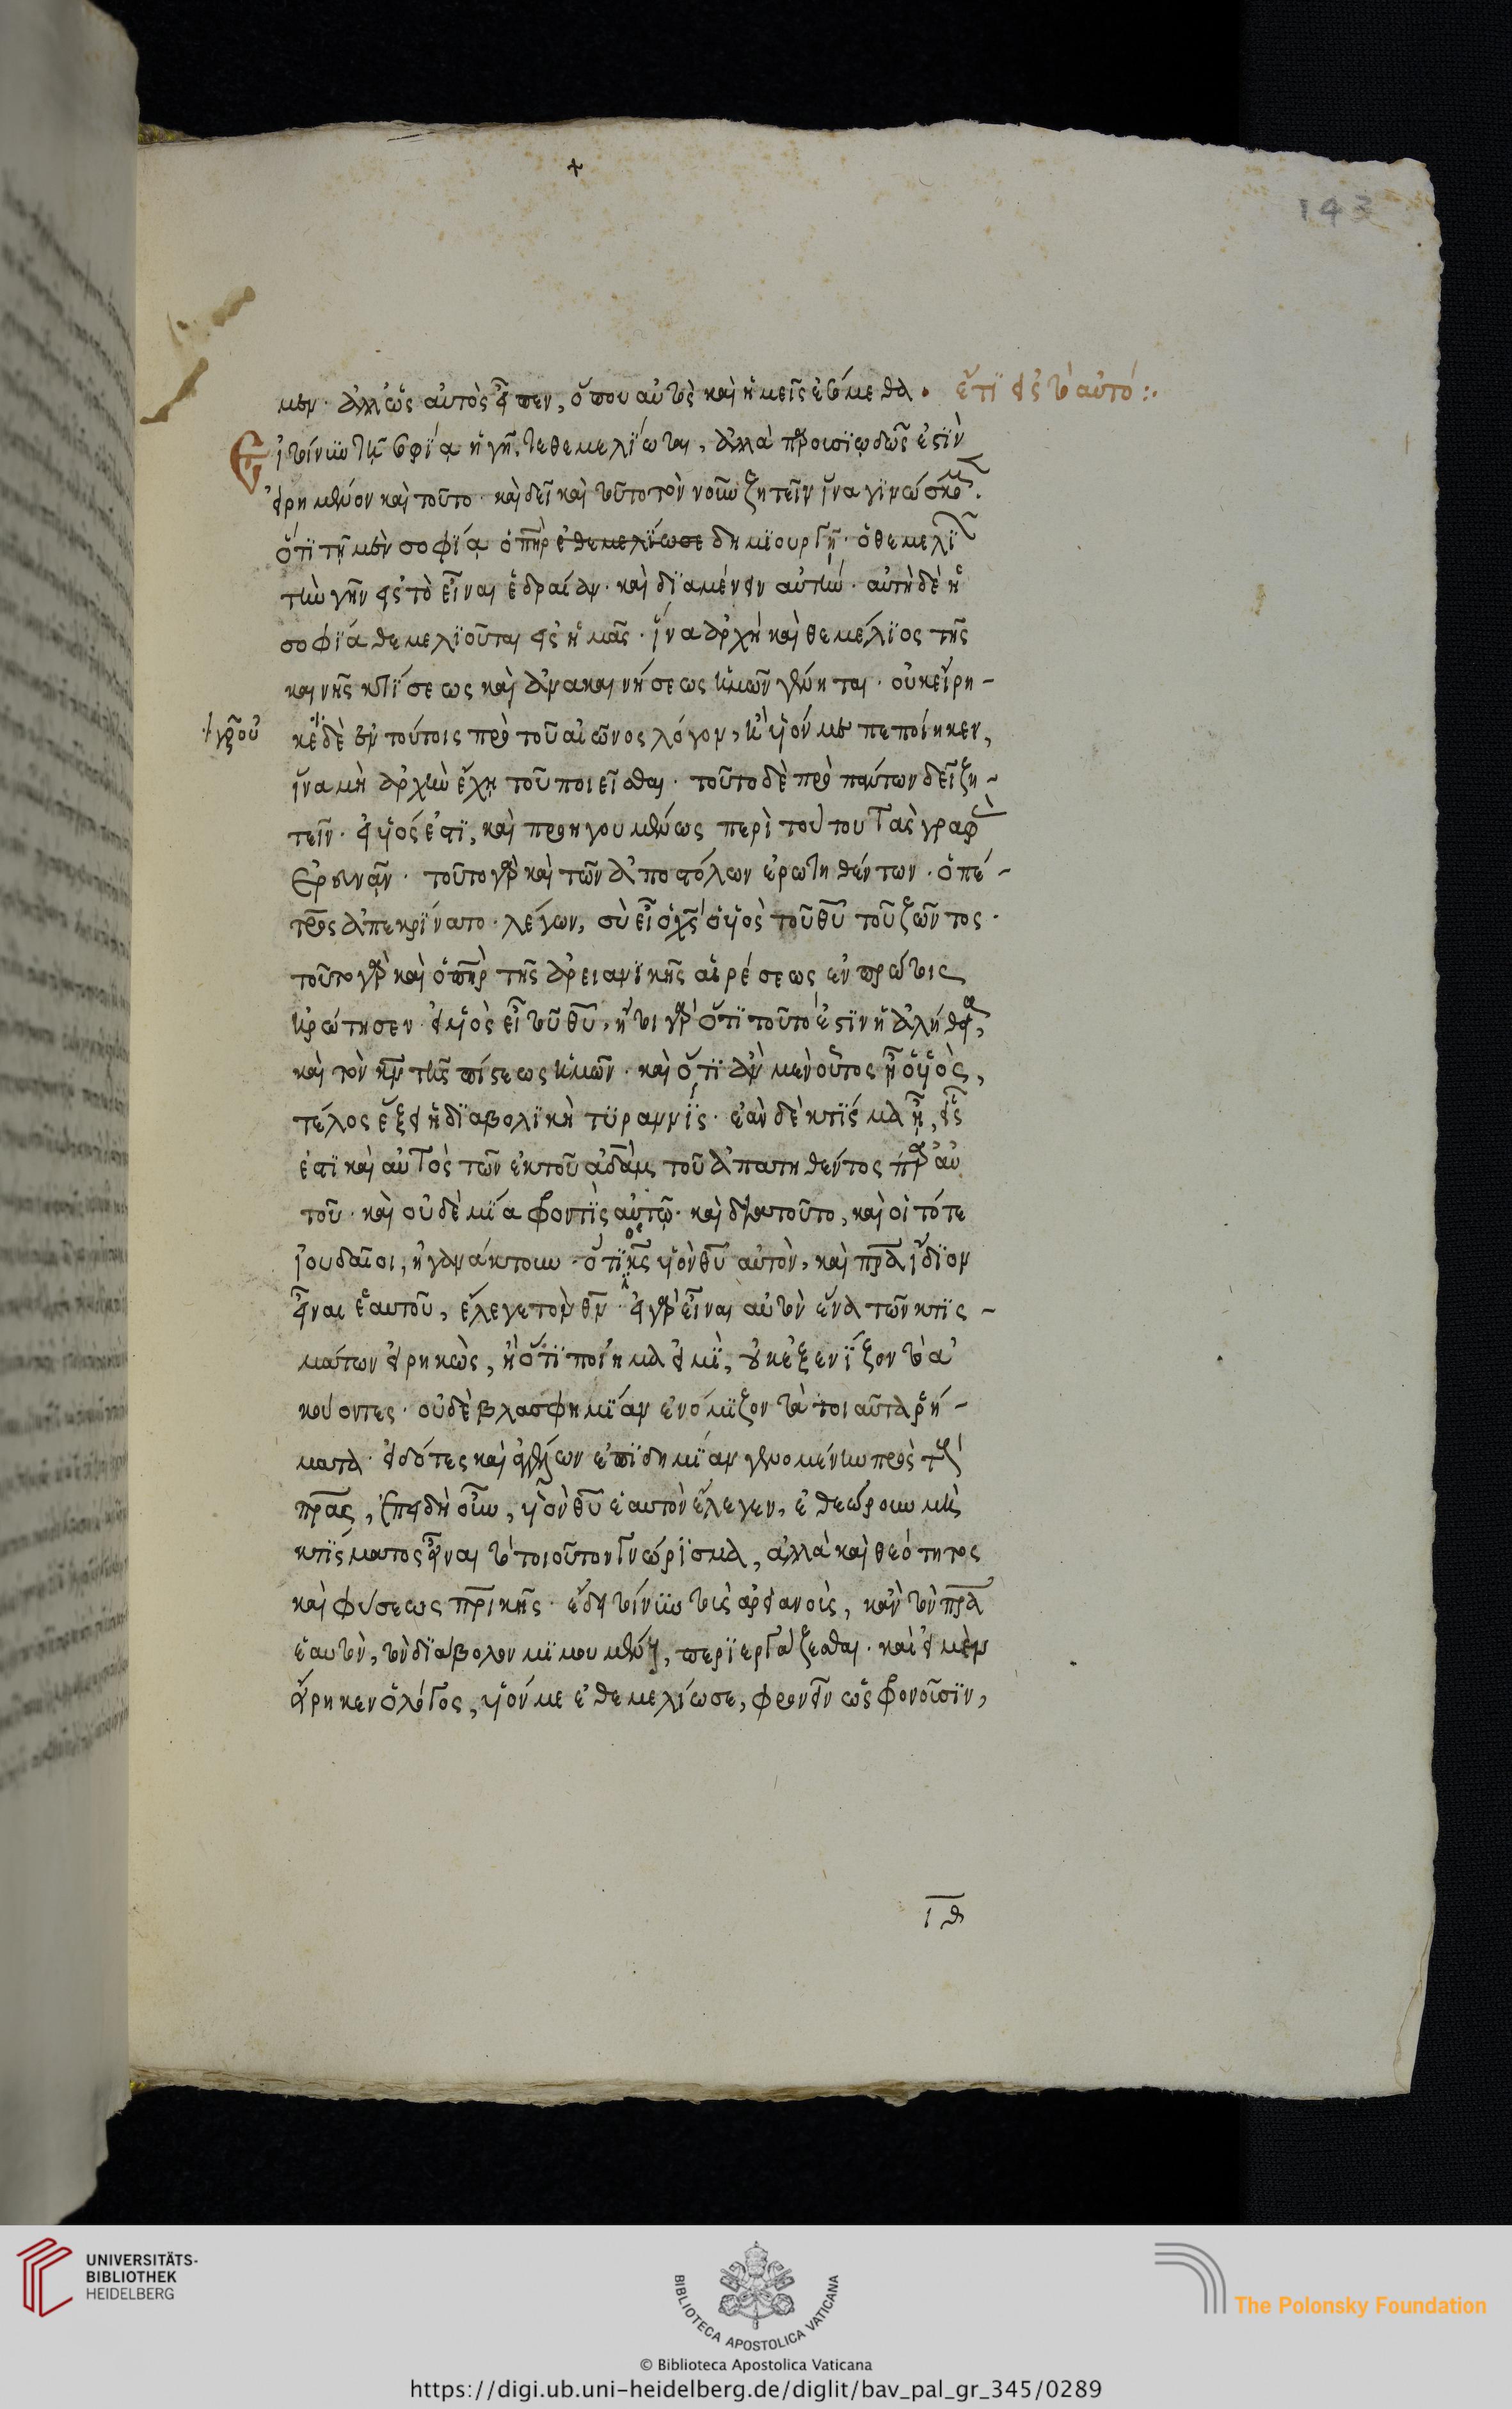 143
μεν· ἀλλ' ὡς αὐτὸς εἶπεν, ὅπου αὐτὸς καὶ ἡμεῖς ἐσόμεθα. ἔτι εἰς τὸ αὐτό:
Εἰ τοίνυν τῇ σοφίᾳ ἡ γῆ τεθεμελίωται, ἀλλὰ παροιμιωδῶς ἐστὶν
εἰρημένον καὶ τοῦτο· καὶ δεῖ καὶ τοῦτο τὸν νοῦν ζητεῖν ἵνα γινώσκωμεν
ὅτι τῇ μὲν σοφίᾳ ὁ πηρ ἐθεμελίωσε δημιουργεῖ· ὁ θεμελιοῖ
τὴν γῆν εἰς τὸ εἶναι ἑδραίαν· καὶ διαμένειν αὐτήν· αὐτὴ δὲ ἡ
σοφία θεμελιοῦται εἰς ἡμᾶς· ἵνα ἀρχὴ καὶ θεμέλιος τῆς
καινῆς κτίσεως καὶ ἀνακαινήσεως ἡμῶν γένηται· οὐκ εἴρη-
γρ οὐ
κε δὲ ἐν τούτοις πρὸ τοῦ αἰῶνος λόγον, ἢ υἱόν με πεποίηκεν,
ἵνα μὴ ἀρχὴν ἔχῃ τοῦ ποιεῖσθαι· τοῦτο δὲ πρὸ πάντων δεῖ ζη-
τεῖν· εἰ υἱός ἐστι, καὶ προηγουμένως περὶ τούτου τὰς γραφὰς
ἐρευνᾶν· τοῦτο γὰρ καὶ τῶν ἀποστόλων ἐρωτηθέντων· ὁ πέ-
τρος ἀπεκρίνατο· λέγων, σὺ εἶ ὁ χς ὁ υἱὸς τοῦ θυ τοῦ ζῶντος·
τοῦτο γὰρ καὶ ὁ πηρ τῆς ἀρειανικῆς αἱρέσεως ἐν πρώτοις
ἠρώτησεν εἰ υἱὸς εἶ τοῦ θυ, ᾔδει γὰρ ὅτι τοῦτό ἐστιν ἡ ἀλήθεια,
καὶ τὸν κῦρ τῆς πίστεως ἡμῶν· καὶ ὅτι ἂν μὲν οὗτος ᾖ ὁ υἱός,
τέλος ἕξει ἡ διαβολικὴ τυραννίς· ἐὰν δὲ κτίσμα ᾖ, εἷς
ἐστι καὶ αὐτὸς τῶν ἐκ τοῦ ἀδὰμ τοῦ ἀπατηθέντος παρ' αὐ
τοῦ· καὶ οὐδεμία φροντὶς αὐτῷ· καὶ διὰ τοῦτο, καὶ οἱ τότε
ἰουδαῖοι, ἠγανάκτουν· ὅτι ὁ κς υἱὸν θυ αὐτὸν, καὶ πρα ἴδιον
εἶναι ἑαυτοῦ, ἔλεγε τὸν θν· εἰ γὰρ εἶναι αὐτὸν ἕνα τῶν κτισ-
μάτων εἰρηκὼς, ἢ ὅτι ποίημά εἰμι, οὐκ ἐξενίζοντο ἀ
κούοντες· οὐδὲ βλασφημίαν ἐνόμιζον τὰ τοιαῦτα ῥή-
ματα· εἰδότες καὶ ἀγγέλων ἐπιδημίαν γενομένην πρὸς τοὺς
πρας, ἐπειδὴ οὖν, υἱὸν θυ ἑαυτὸν ἔλεγεν, ἐθεώρουν μὴ
κτίσματος εἶναι τὸ τοιοῦτον γνώρισμα, ἀλλὰ καὶ θεότητος
καὶ φύσεως πρικῆς· ἔδει τοίνυν τοὺς ἀρειανοὺς, κἂν τὸν πρα
ἑαυτῶν, τὸν διάβολον μιμουμένους, περιεργάζεσθαι· καὶ εἰ μὲν
εἴρηκεν ὁ λόγος, υἱόν με ἐθεμελίωσε, φρονεῖν ὡς φρονοῦσιν,
ιθ
UNIVERSITÄTS-
BIBLIOTHEK
HEIDELBERG
BIBLIOTECA APOSTOLICA VATICANA
The Polonsky Foundation
© Biblioteca Apostolica Vaticana
https://digi.ub.uni-heidelberg.de/diglit/bav_pal_gr_345/0289